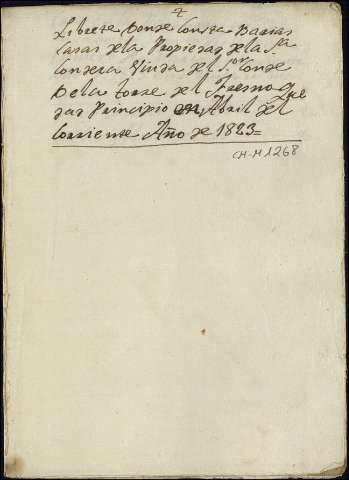 4
Librete Donde Consta Barias
Casas de la Propiedad de la S.ra
Condesa Viuda del S.or Conde
De la Torre del Fresno q.e
dar Principio en Abril del
Corriente Año de 1823=
CH-H 1268